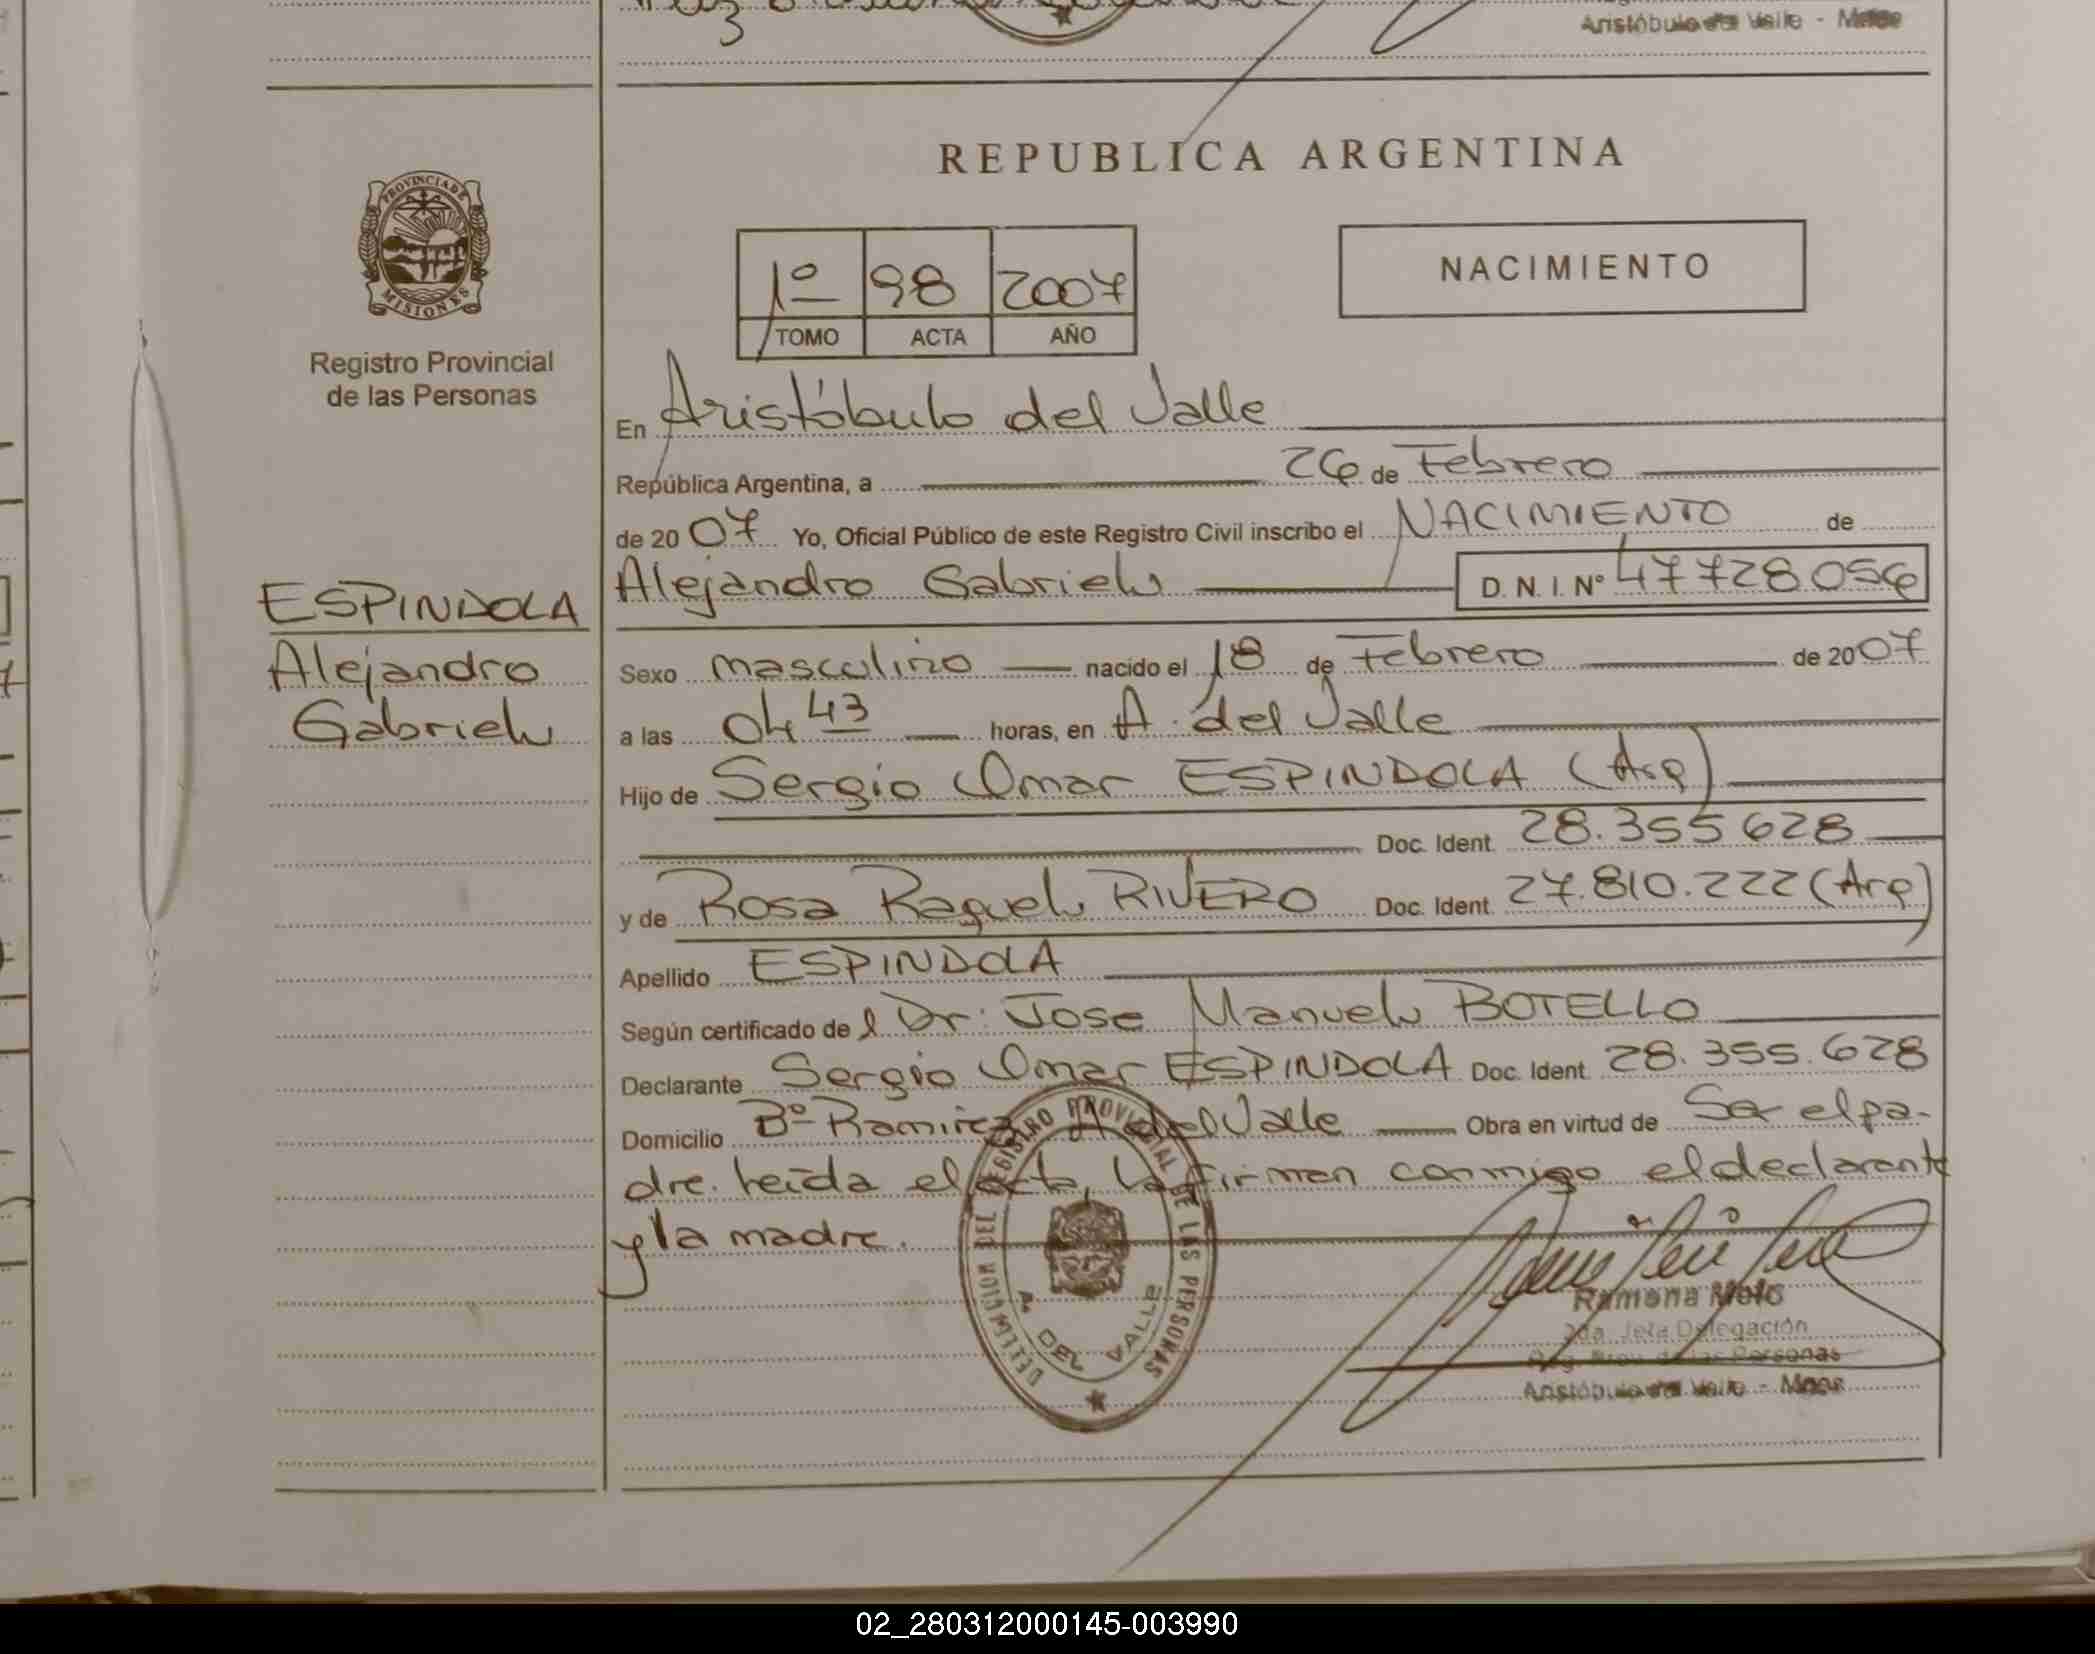 Aristóbulo del Valle - Mnes
REPUBLICA ARGENTINA
PROVINCIA DE
MISIONES
Registro Provincial
de las Personas
1º 98 2007
TOMO ACTA AÑO
NACIMIENTO
En Aristóbulo del Valle
República Argentina, a 26 de Febrero
de 2007 Yo, Oficial Público de este Registro Civil inscribo el NACIMIENTO de
ESPINDOLA
Alejandro
Gabriel
Alejandro Gabriel D. N. I. Nº 47728056
Sexo masculino nacido el 18 de Febrero de 2007
a las 04 43 horas, en A. del Valle
Hijo de Sergio Omar ESPINDOLA (Arg)
Doc. Ident. 28.355628
y de Rosa Raquel RIVERO Doc. Ident. 27.810.222 (Arg)
Apellido ESPINDOLA
Según certificado de l Dr. Jose Manuel BOTELLO
Declarante Sergio Omar ESPINDOLA Doc. Ident 28.355.628
Domicilio Bº Ramirez A del Valle Obra en virtud de Ser el pa-
dre. leída el acta, la firman conmigo el declarante
y la madre.
DELEGACION DEL REGISTRO PROVINCIAL DE LAS PERSONAS
A. DEL VALLE
Ramona Melo
2da. Jefa Delegación
Reg. Prov. de las Personas
Aristóbulo del Valle - Mnes
02_280312000145-003990